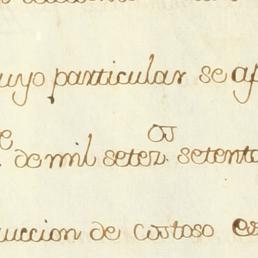 uyo particular se af
de mil setez.os setenta
uccion de costoso